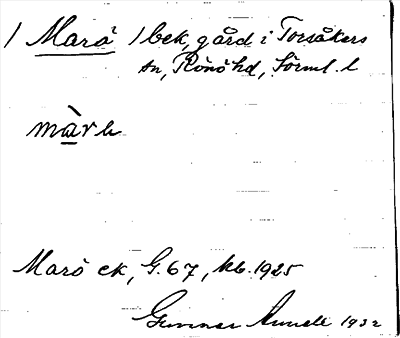 / Marö / bek, gård i Torsåkers
sn, Rönö hd, Sörml. l
màrö
Marö ek, G. 67, kb. 1925
Gunnar Annell 1932